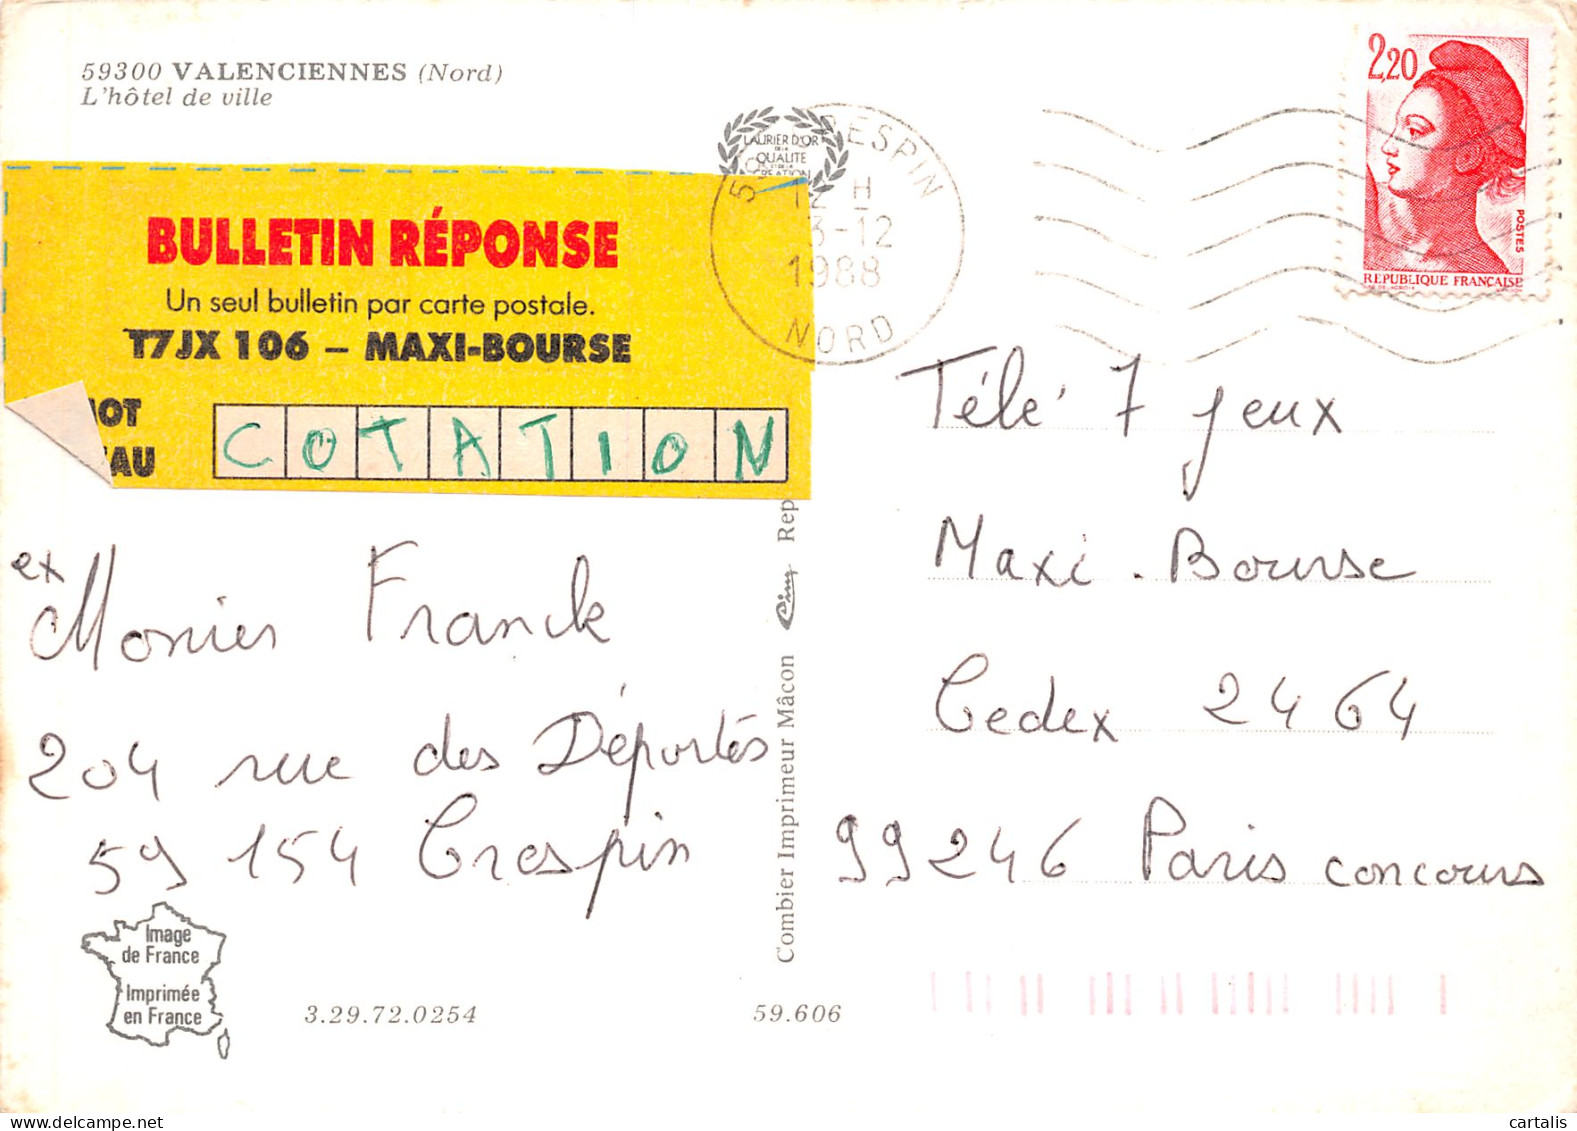 59300 VALENCIENNES (Nord)
L'hôtel de ville
BULLETIN RÉPONSE
Un seul bulletin par carte postale.
T7JX 106 – MAXI-BOURSE
COTATION
ex
Monier Franck
204 rue des Déportés
59 154 Crespin
Image
de France
Imprimée
en France
3.29.72.0254
59.606
Combier Imprimeur Mâcon
LAURIER D'OR
DE LA
QUALITE
ET DE LA
CREATION
12 H
-12
1988
NORD
2,20
POSTES
REPUBLIQUE FRANÇAISE
Télé 7 Jeux
Maxi-Bourse
Cedex 2464
99246 Paris concours
cartalis